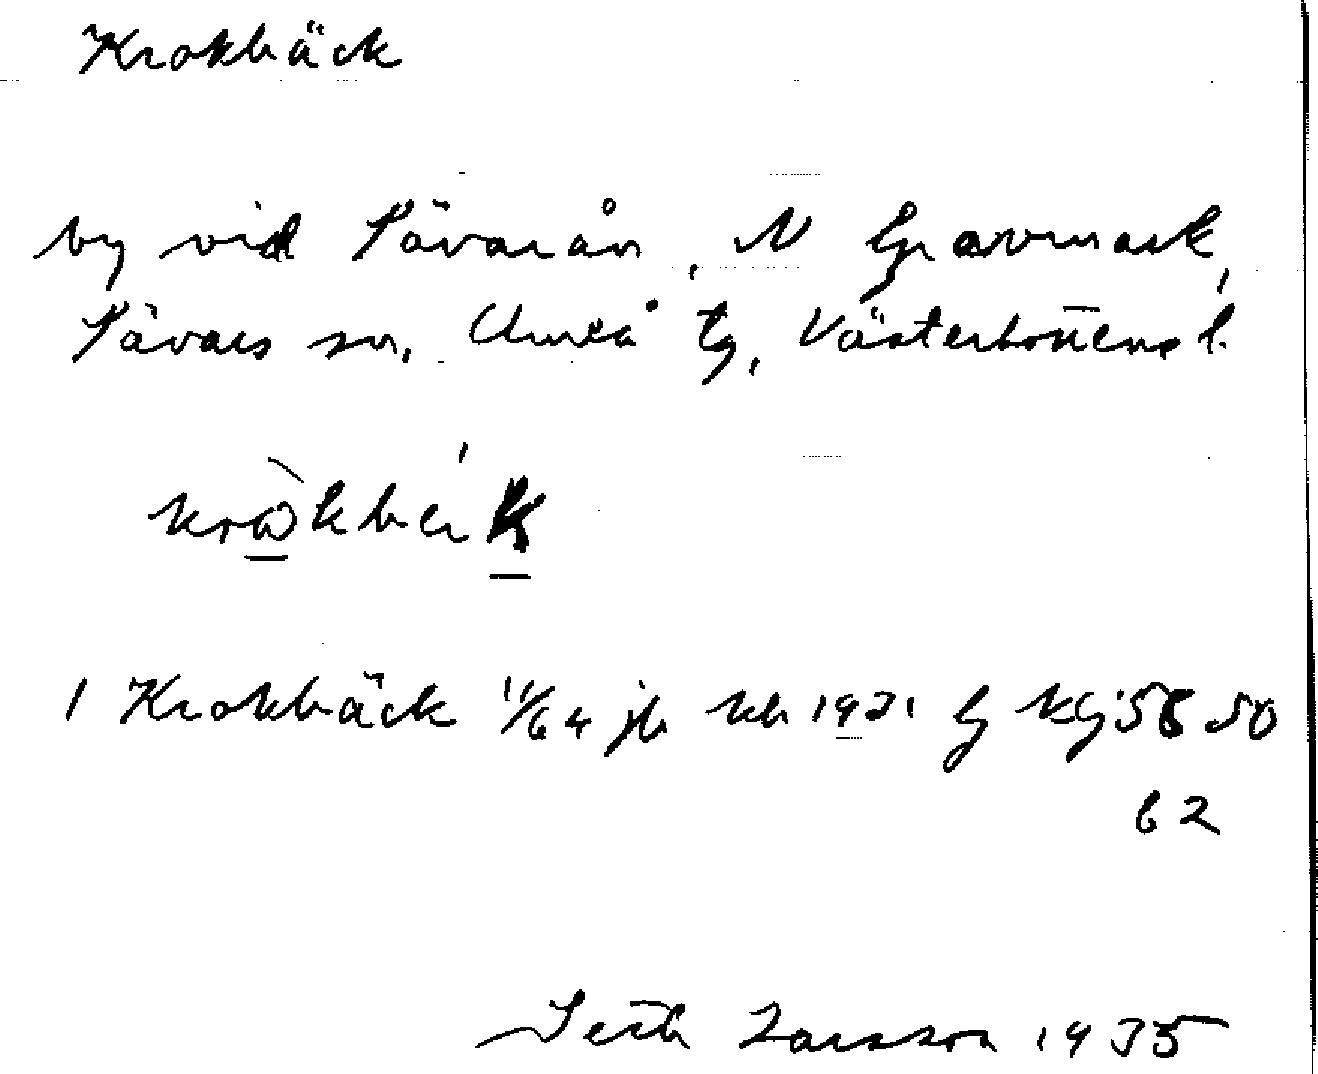 Krokbäck
by vid Sävarån, N Gravmark,
Sävars sn, Umeå tg, Västerbottens l.
1 Krokbäck 11/64 jb kb 1921 G kg 58 50
62
Seth Larsson 1935